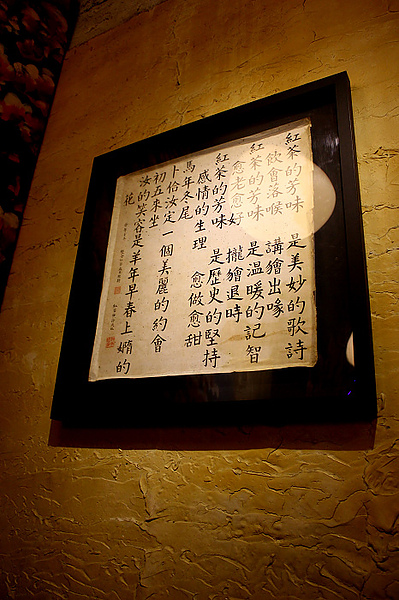 紅茶的芳味 是美妙的歌詩
飲會落喉 講𣍐出喙
紅茶的芳味 是溫暖的記智
愈老愈好 攏𣍐退時
紅茶的芳味 是歷史的堅持
感情的生理 愈做愈甜
馬年冬尾
卜佮汝定一個美麗的約會
初五來坐
汝的笑容是羊年早春上嫷的
花